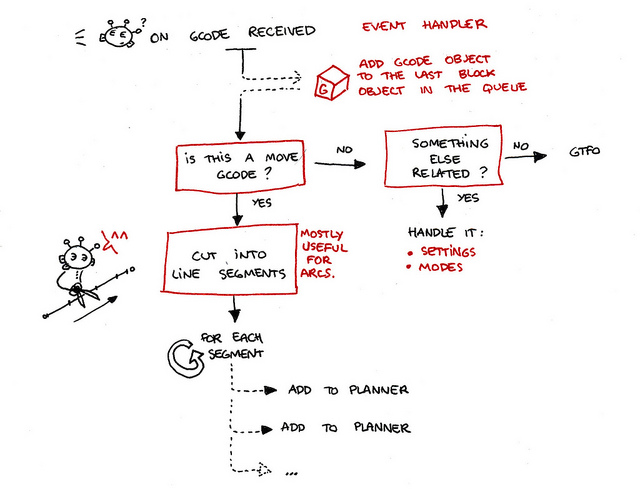 ?
ON GCODE RECEIVED
EVENT HANDLER
ADD GCODE OBJECT
TO THE LAST BLOCK
OBJECT IN THE QUEUE
G
IS THIS A MOVE
GCODE ?
NO
SOMETHING
ELSE
RELATED ?
NO
GTFO
YES
YES
HANDLE IT:
• SETTINGS
• MODES
^^
CUT INTO
LINE SEGMENTS
MOSTLY
USEFUL
FOR
ARCS.
FOR EACH
SEGMENT
ADD TO PLANNER
ADD TO PLANNER
...